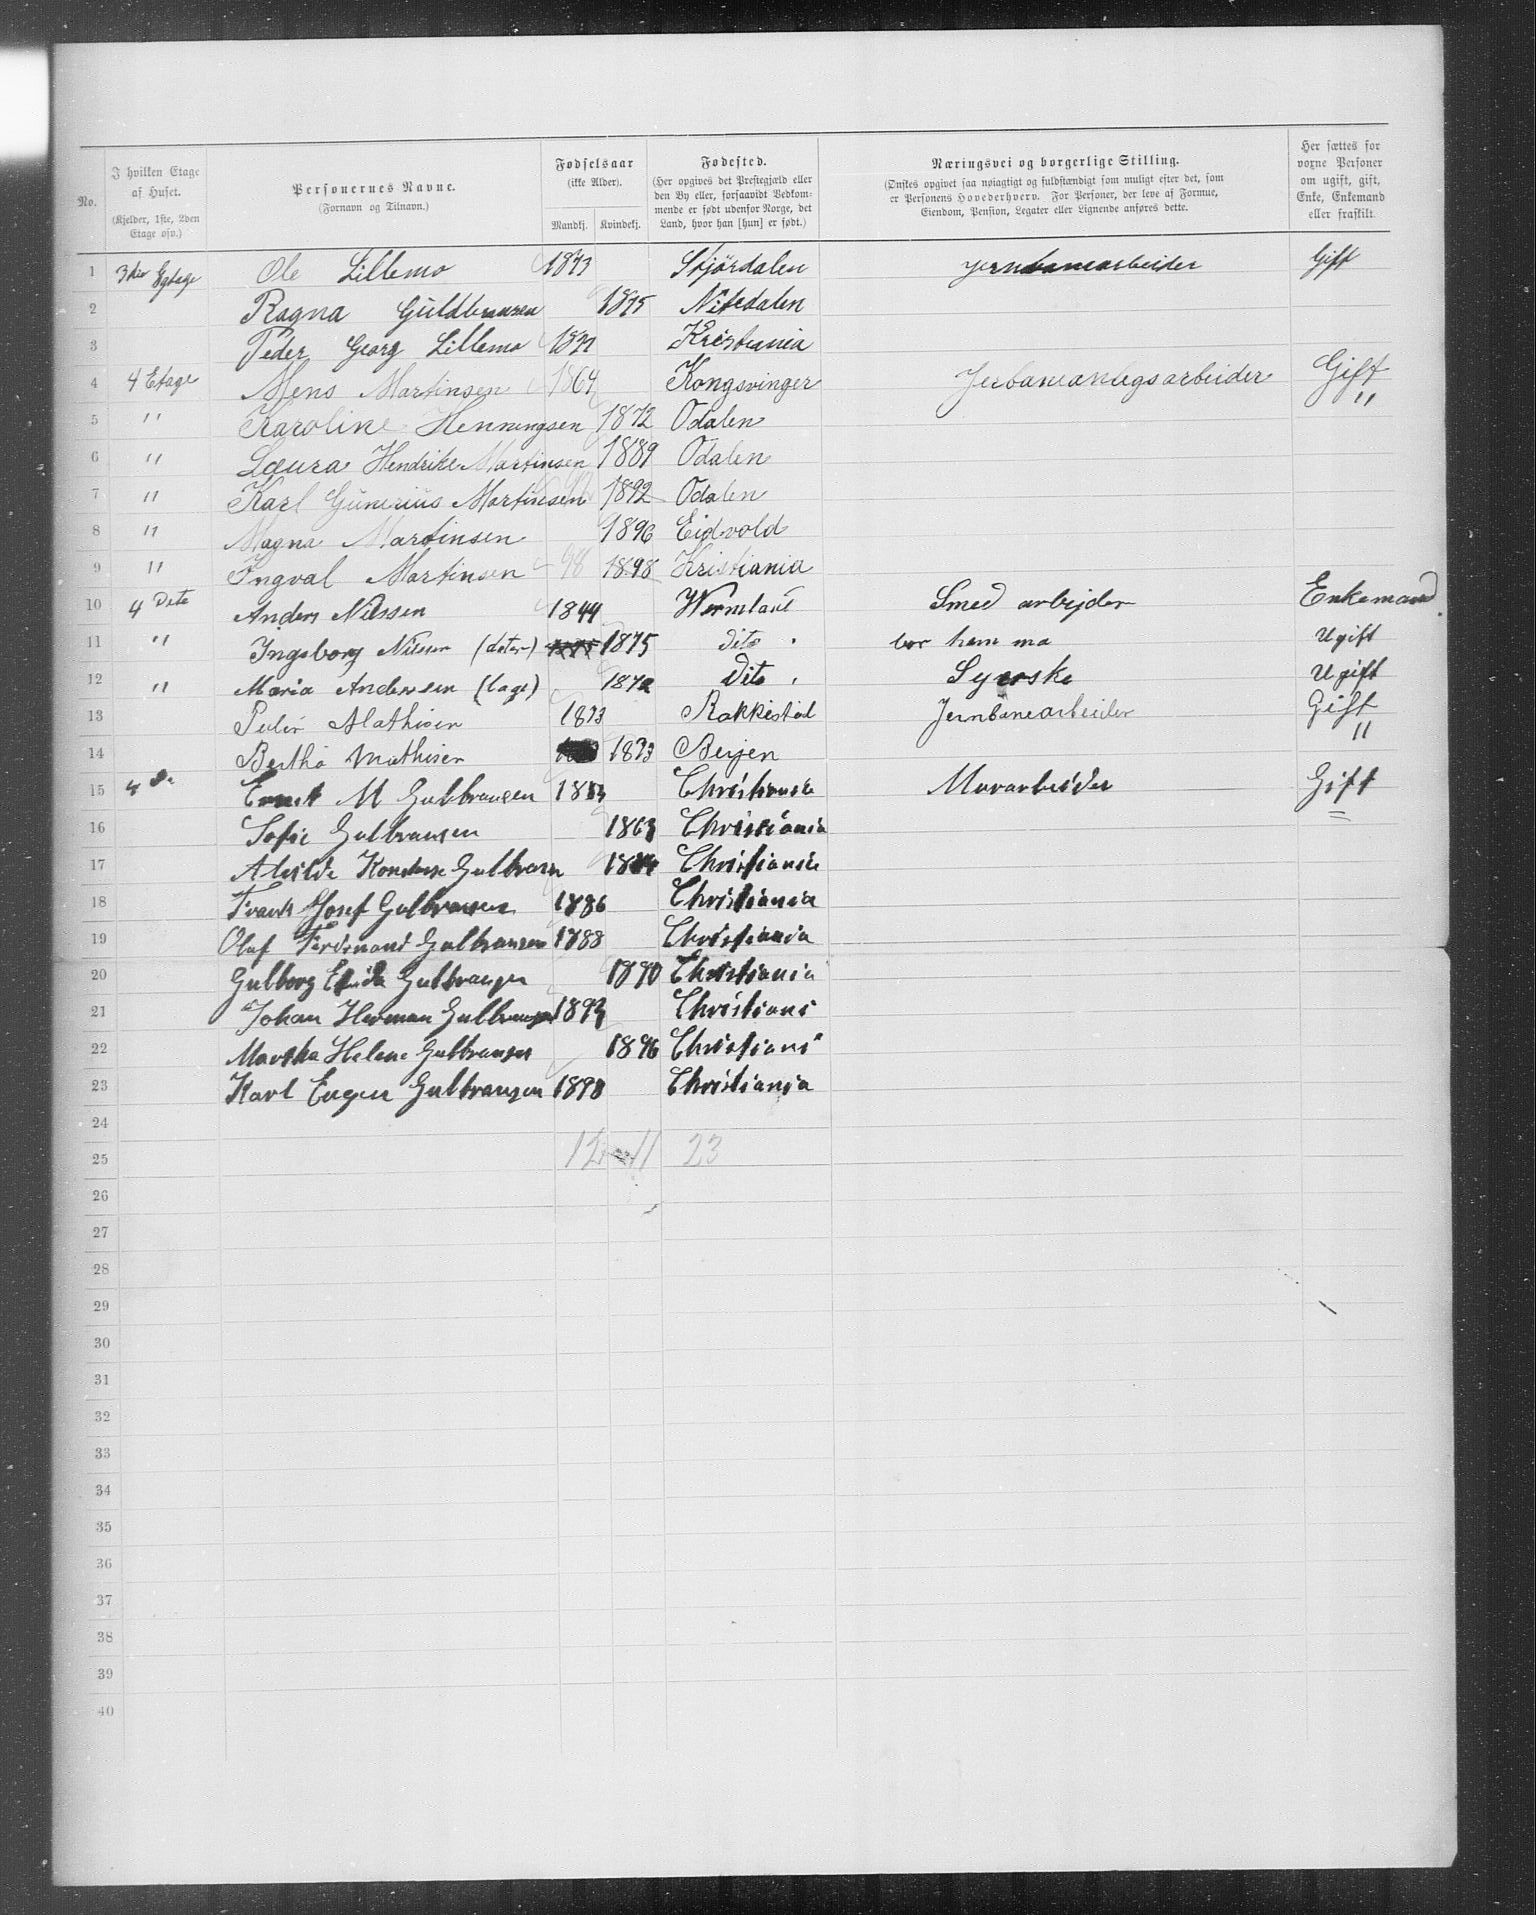 No.
I hvilken Etage af Huset. (Kjelder, 1ste, 2den Etage osv.)
Personernes Navne. (Fornavn og Tilnavn.)
Fødselsaar (ikke Alder). Mandkj. Kvindekj.
Fødested. (Her opgives det Prestegjæld eller den By eller, forsaavidt Vedkommende er født udenfor Norge, det Land, hvor han [hun] er født.)
Næringsvei og borgerlige Stilling. (Ønskes opgivet saa nøiagtigt og fuldstændigt som muligt efter det, som er Personens Hovederhverv. For Personer, der leve af Formue, Eiendom, Pension, Legater eller Lignende anføres dette.)
Her sættes for voxne Personer om ugift, gift, Enke, Enkemand eller fraskilt.
1 Ole Lillemo 1873 Stjördalen Jernbanearbeider Gift
2 Ragna Guldbransen 1875 Nitedalen
3 Peder Georg Lillemo Kristiania
4 4 Etage Mens Martinsen 1864 Kongsvinger Jerbaneanlegsarbeider Gift
5 " Karoline Henningsen 1872 Odalen "
6 " Laura Hendrike Martinsen 1889 Odalen
7 " Karl Gunerius Martinsen 1892 Odalen
8 " Magna Martinsen 1896 Eidvold
9 " Ingval Martinsen 98 1898 Kristiania
10 4 Dito Anders Nilssen 1844 Wermland Smed arbejder Enkemand
11 " Ingeborg Nilssen (dater) 1875 dito bor hem ma Ugift
12 " Maria Andersen (loge) 1872 Dito Syerske Ugift
13 Peder Mathisen 1873 Rakkestad Jernbanearbeider Gift
14 Bertha Mathisen 1873 Berjen "
15 4 do Ernst M Gulbransen Christiania Murarbeider Gift
16 Sofie Gulbransen 1863 Christiania
17 Gulbransen Christiania
18 Frank Josef Gulbransen 1886 Christiania
19 Oluf Ferdinand Gulbransen 1888 Christiania
20 Gulborg Gulbransen 1890 Christiania
21 Johan Herman Gulbransen 1893 Christiani
22 Martha Helene Gulbransen 1896 Christiani
23 Karl Eugen Gulbransen 1898 Christiania
24
25 12 11 23
26
27
28
29
30
31
32
33
34
35
36
37
38
39
40